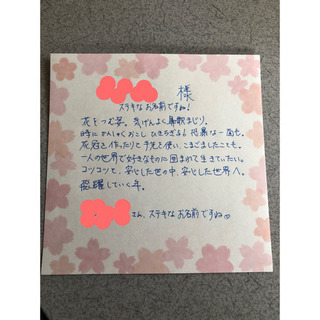 様
ステキなお名前ですね!
花をつむ姿。気げんよく鼻歌まじり。
時にかんしゃくおこし ひきちぎる
な一面も。
花冠を作ったりと手先を使い、こまごましたことも。
一人の世界で好きなものに囲まれて生きていたい。
コツコツと、安心した世の中、安心した世界へ。
躍していく年。
さん、ステキなお名前ですね♡